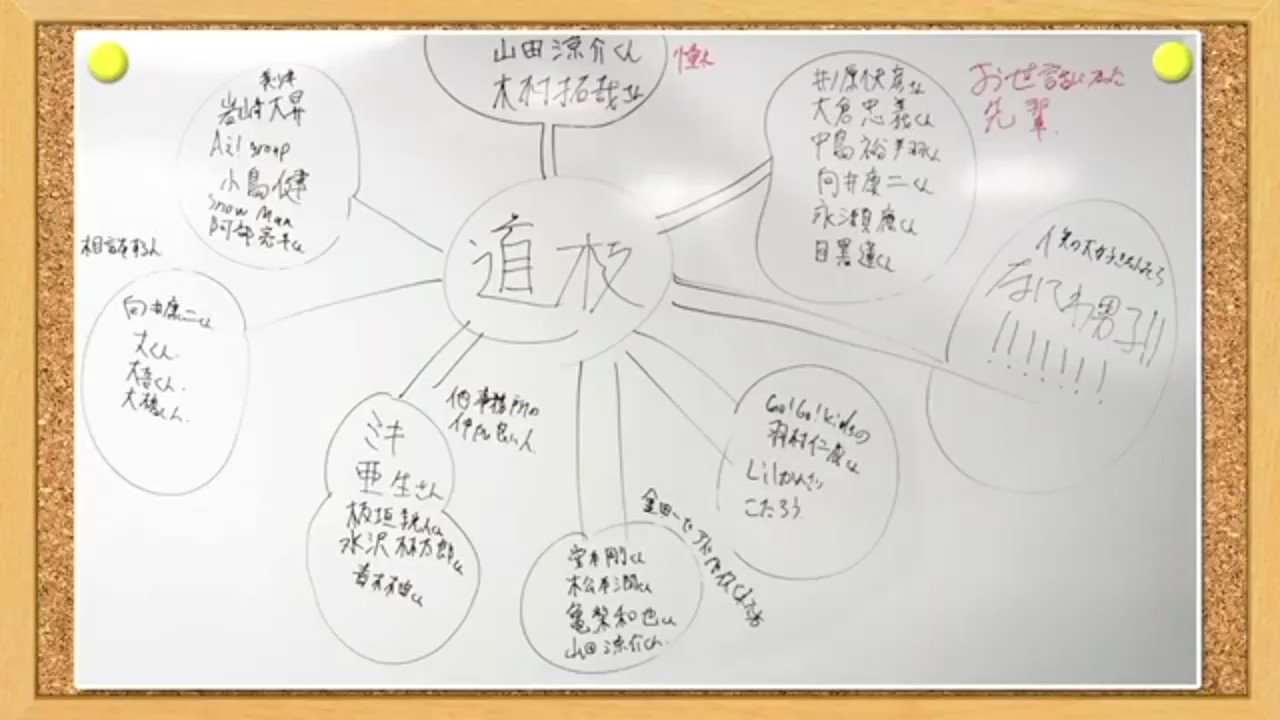 山田涼介くん
木村拓哉さん
憧れ
美少年
岩﨑大昇
Aぇ! group
小島健
Snow Man
阿部亮平くん
井ノ原快彦さん
大倉忠義くん
中島裕翔くん
向井康二くん
永瀬廉くん
目黒蓮くん
おせ話になった
先輩
道枝
なにわ男子!!
!!!!!!!
相談する人
向井康二くん
丈くん
大吾くん
大橋くん
他事務所の
仲良い人
ミキ
亜生さん
板垣瑞生くん
水沢林太郎くん
Go!Go!kidsの
羽村仁成くん
Lilかんさい
こたろう
金田一でアドバイスくれる
堂本剛くん
松本潤くん
亀梨和也くん
山田涼介くん